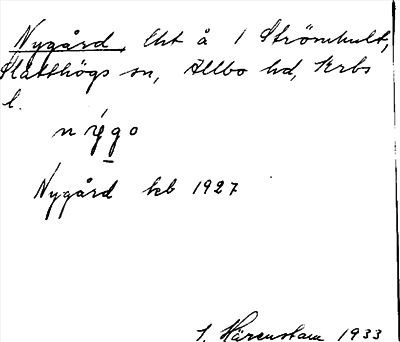 Nygård, lht å 1 Strömhult,
Slätthögs sn, Allbo hd, Krbs
l.
nýgo
Nygård kb 1927
S. Härenstam 1933